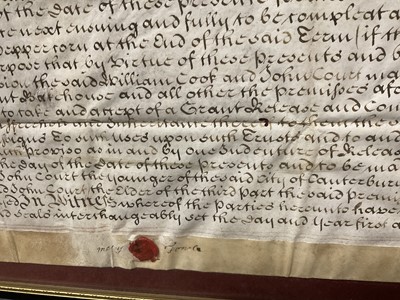 the date of these Presents
ate next ensuing and fully to be compleat a
Pepper Corn at the End of the said Term (if th
rpose that by Virtue of these Presents and b
sion the said William Cook and John Court ma
nt Bakehouse and all other the Premisses afo
to take and accept of a Grant Release and Con
to
signs To our uses upon with Trusts and to and
Proviso as in and By one Indenture of Releas
the date of these Presents and to be ma
John Court the younger of the said City of Canterbury
nd John Court the Elder of the third Part the said Premis
sed In Witness whereof the Parties hereunto have
nd Seals interchangeably set the day and Year first a
mary Jones